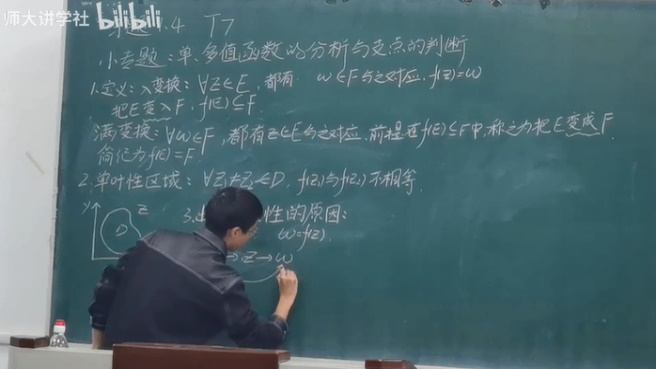 师大讲学社 bilibili
.4 T7
小专题:单.多值函数的分析与支点的判断
1.定义:入变换:∀z∈E,都有 w∈F与之对应,f(z)=w
把E变入F,f(E)⊆F
满变换:∀w∈F,都有z∈E与之对应.前提在f(E)⊆F中,称之为把E变成F.
简记为f(E)=F.
2.单叶性区域:∀z₁≠z₂∈D,f(z₁)与f(z₂)不相等.
y z D
3. 性的原因:
w=f(z).
→z→w